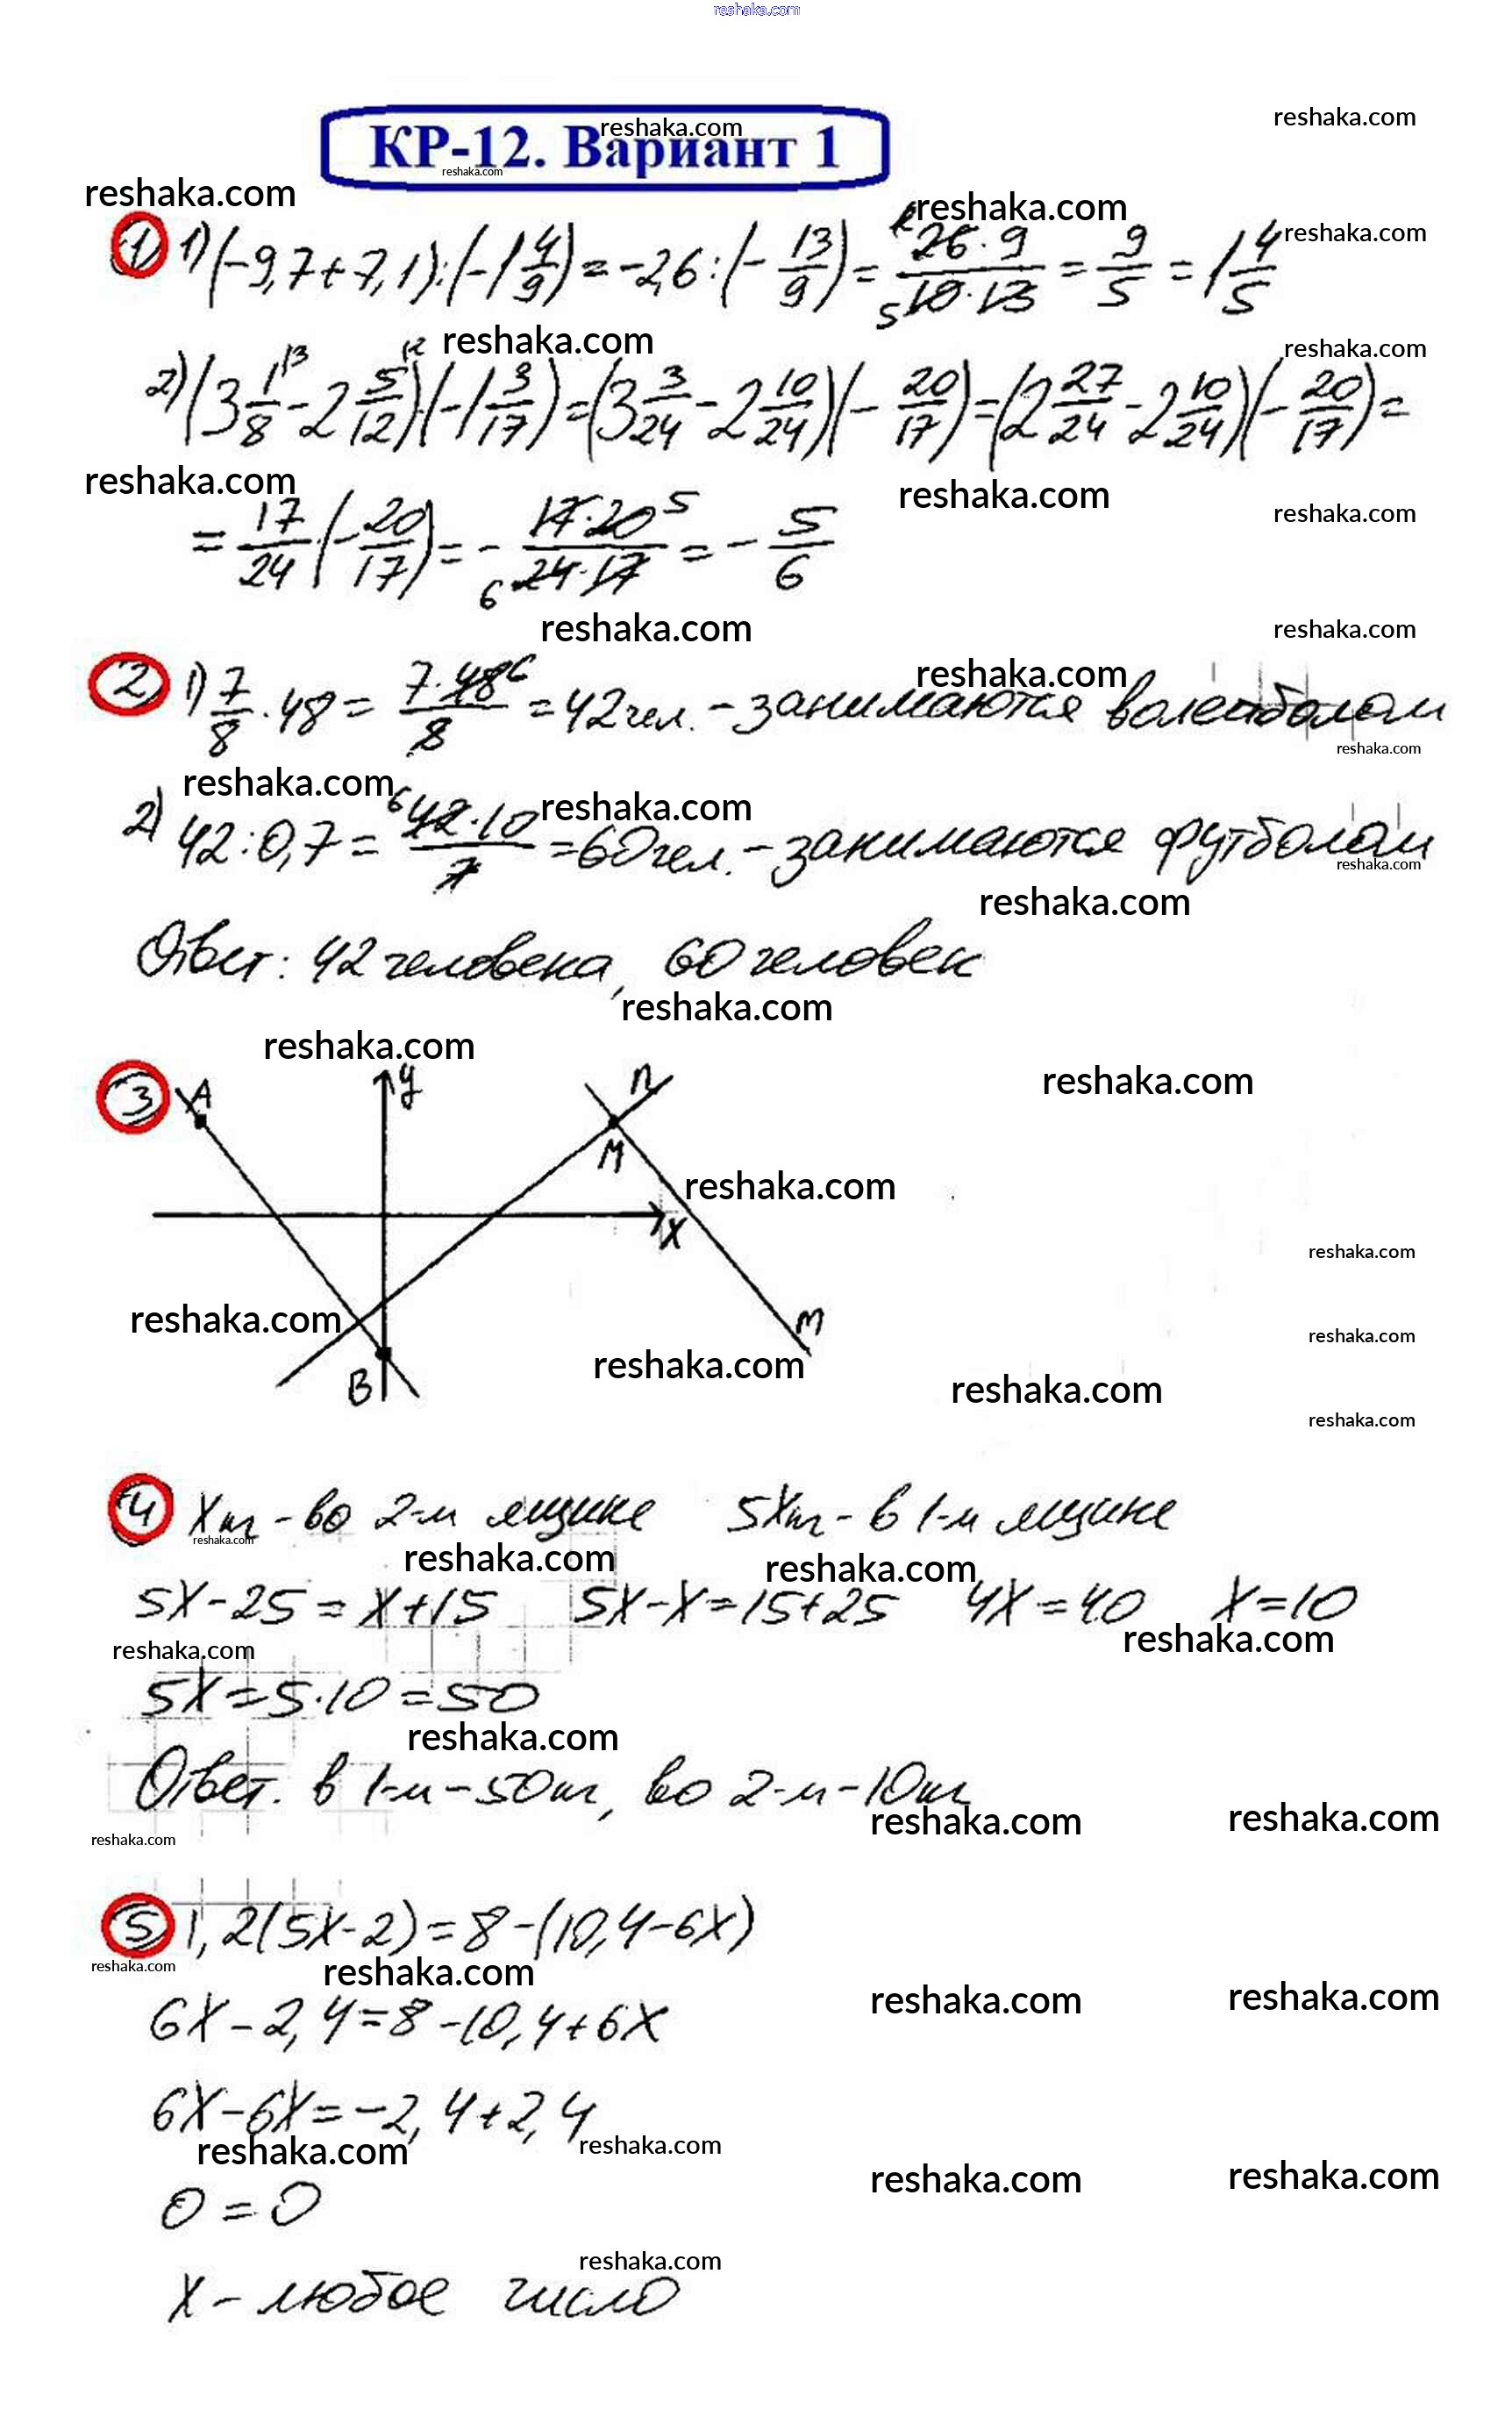 reshaka.com
КР-12. Вариант 1
① 1) (-9,7+7,1):(-1 4/9) = -2,6:(- 13/9) = 26·9/10·13 = 9/5 = 1 4/5
2) (3 1/8 - 2 5/12)·(-1 3/17) = (3 3/24 - 2 10/24)(- 20/17) = (2 27/24 - 2 10/24)(- 20/17) =
= 17/24·(- 20/17) = - 17·20/24·17 = - 5/6
② 1) 7/8 · 48 = 7·48/8 = 42 чел. - занимаются волейболом
2) 42:0,7 = 42·10/7 = 60 чел. - занимаются футболом
Ответ: 42 человека, 60 человек
③ A y n
M
x
m
B
④ x кг - во 2-м ящике 5x кг - в 1-м ящике
5x-25=x+15 5x-x=15+25 4x=40 x=10
5x=5·10=50
Ответ. в 1-м - 50 кг, во 2-м - 10 кг
⑤ 1,2(5x-2)=8-(10,4-6x)
6x-2,4=8-10,4+6x
6x-6x=-2,4+2,4
0=0
x - любое число